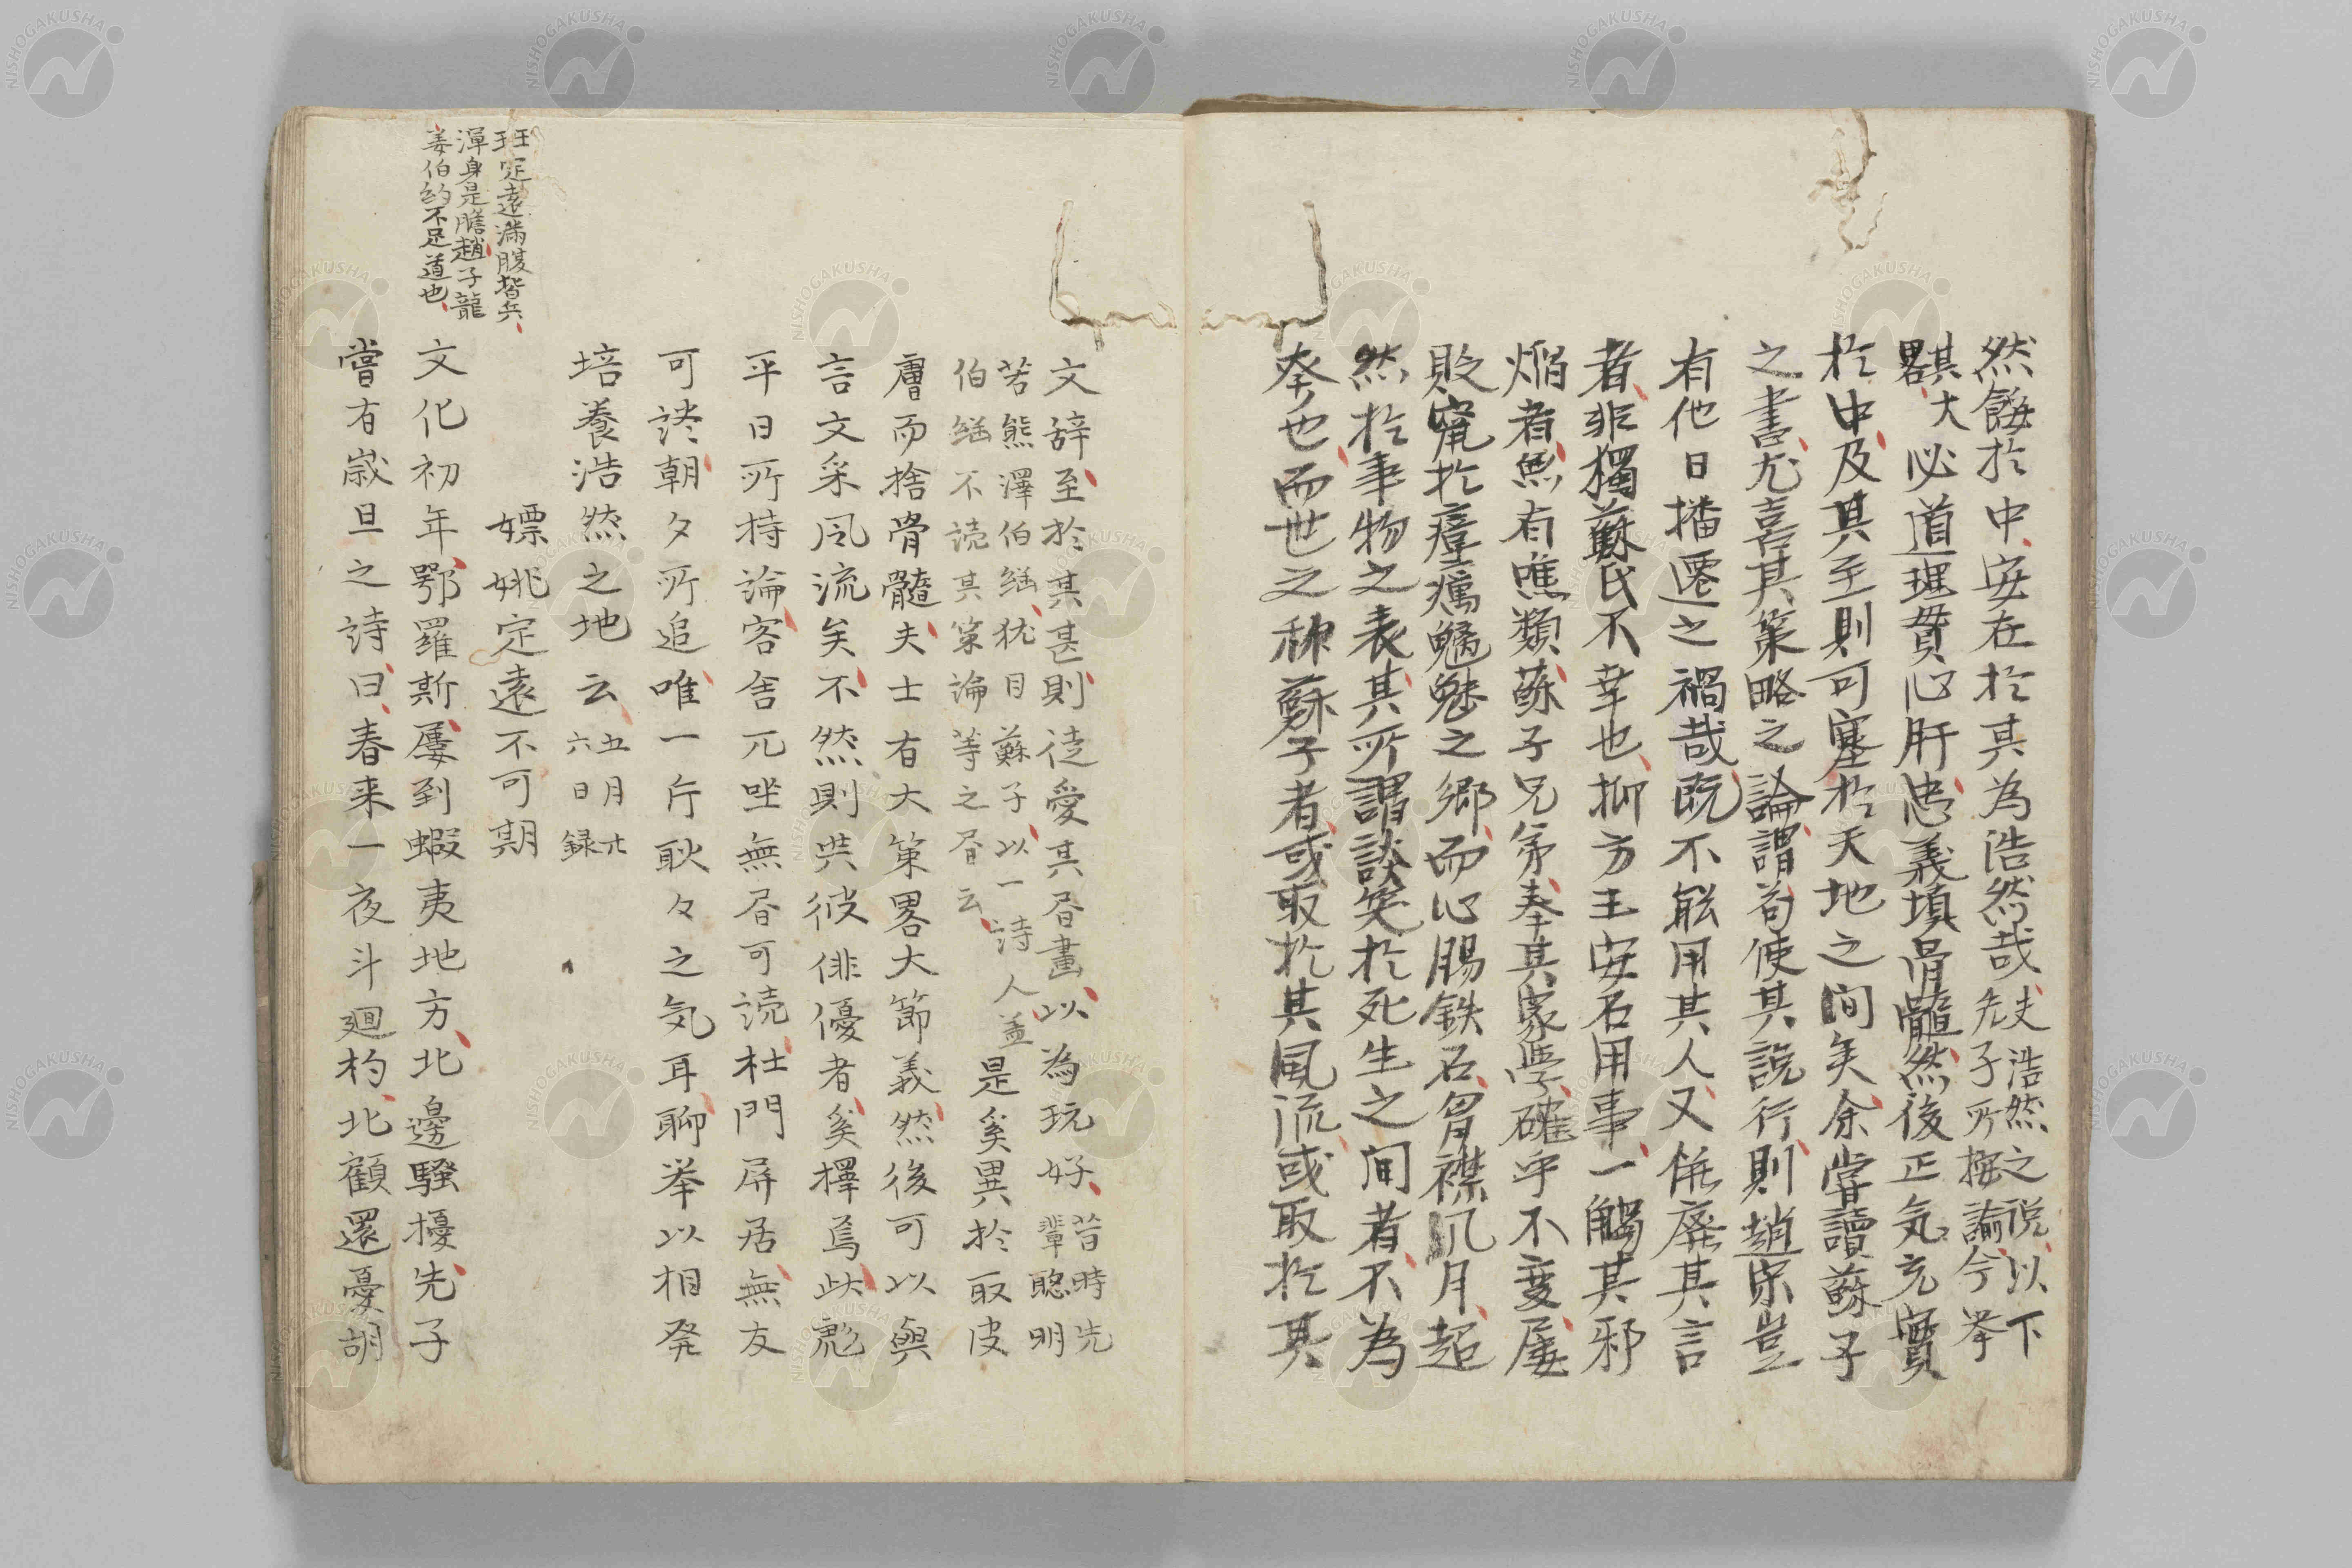 然餒於中、安在於其為浩然哉、夫浩然之説、以下
先子所撰論、今挙
其畧、大必道理貫心肝、忠義填骨髓、然後正気充實
於中、及其至則可塞於天地之間矣、余嘗讀蘇子
之書、尤喜其策略之論、謂苟使其説行、則趙宋豈
有他日播遷之禍哉、既不能用其人、又併廃其言
者、非獨蘇氏不幸也、抑方王安石用事、一觸其邪
焔者、無有噍類、蘇子兄弟奉其家学、確乎不変、屡
敗竄於瘴癘魑魅之郷、而心腸鉄石、胷襟風月、超
然於事物之表、其所謂談笑於死生之間者、不為
奉也、而世之称蘇子者、或取於其風流、或取於其
文辞、至於其甚、則徒愛其書畫、以為玩好、昔時先
輩聡明
若熊澤伯継、犹目蘇子、以一詩人、蓋
伯継不読其策論等之書云、
是奚異於取皮
膚而捨骨髓、夫士有大策畧大節義、然後可以與
言文采風流矣、不然則与彼俳優者、奚擇焉、此彪
平日所持論、客舎兀坐、無書可読、杜門屏居、無友
可談、朝夕所追、唯一片耿々之気耳、聊挙以相発
培養浩然之地云、五月廿
六日録
嫖姚定遠不可期
文化初年、鄂羅斯屡到蝦夷地方、北邊騒擾、先子
嘗有歳旦之詩、曰、春来一夜斗廻杓、北顧還憂胡
班定遠満腹皆兵、
渾身是膽、趙子龍
姜伯約不足道也、